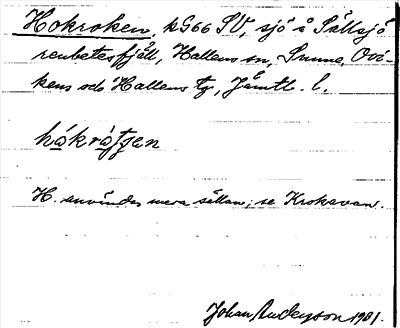 Hokroken, kG66 SV, sjö å Sällsjö
renbetesfjäll, Hallens sn, Sunne, Ovi-
kens och Hallens tg, Jämtl. l.
håkråtjen
H. användes mera sällan; se Krokavan.
Johan Anderzon 1901.